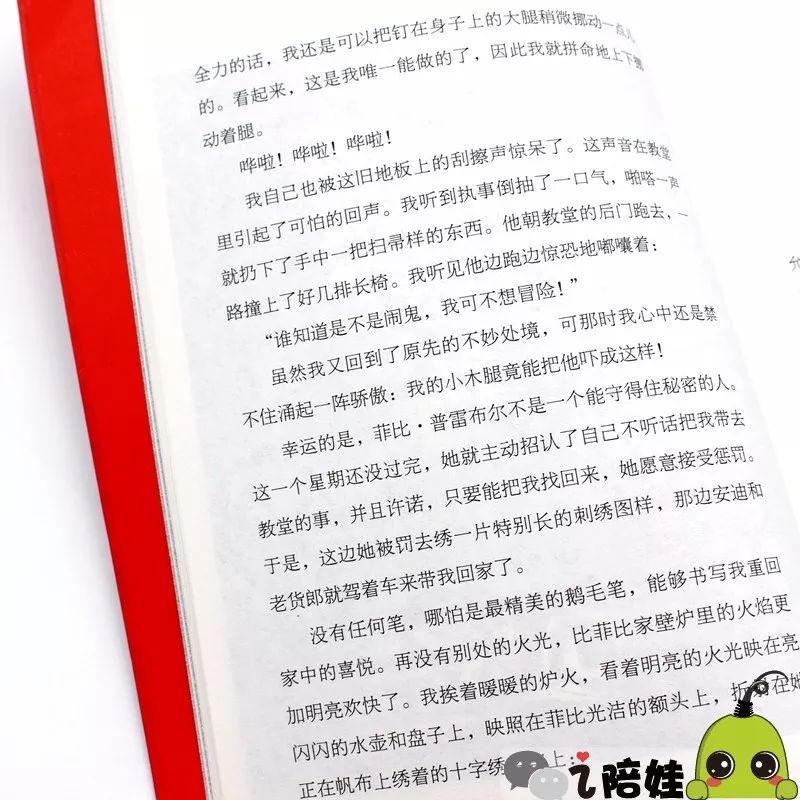 全力的话，我还是可以把钉在身子上的大腿稍微挪动一点儿
的。看起来，这是我唯一能做的了，因此我就拼命地上下挪
动着腿。
哗啦！哗啦！哗啦！
我自己也被这旧地板上的刮擦声惊呆了。这声音在教堂
里引起了可怕的回声。我听到执事倒抽了一口气，啪嗒一声
就扔下了手中一把扫帚样的东西。他朝教堂的后门跑去，一
路撞上了好几排长椅。我听见他边跑边惊恐地嘟囔着：
“谁知道是不是闹鬼，我可不想冒险！”
虽然我又回到了原先的不妙处境，可那时我心中还是禁
不住涌起一阵骄傲：我的小木腿竟能把他吓成这样！
幸运的是，菲比·普雷布尔不是一个能守得住秘密的人。
这一个星期还没过完，她就主动招认了自己不听话把我带去
教堂的事，并且许诺，只要能把我找回来，她愿意接受惩罚。
于是，这边她被罚去绣一片特别长的刺绣图样，那边安迪和
老货郎就驾着车来带我回家了。
没有任何笔，哪怕是最精美的鹅毛笔，能够书写我重回
家中的喜悦。再没有别处的火光，比菲比家壁炉里的火焰更
加明亮欢快了。我挨着暖暖的炉火，看着明亮的火光映在亮
闪闪的水壶和盘子上，映照在菲比光洁的额头上，折在她
正在帆布上绣着的十字绣上：
允
i陪娃